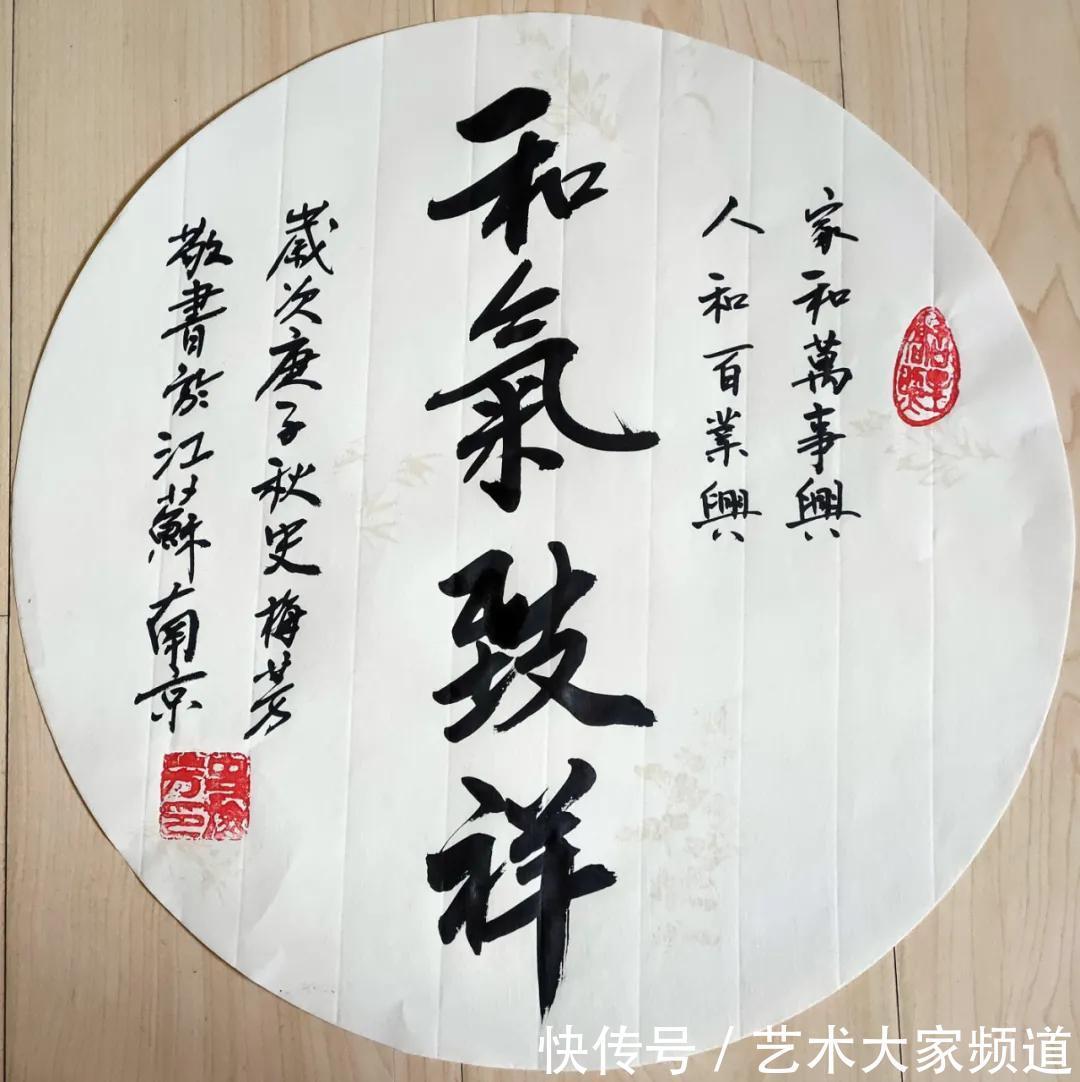 家和萬事興
人和百業興
和氣致祥
歲次庚子秋史梅芳
敬書於江蘇南京
快传号 / 艺术大家频道